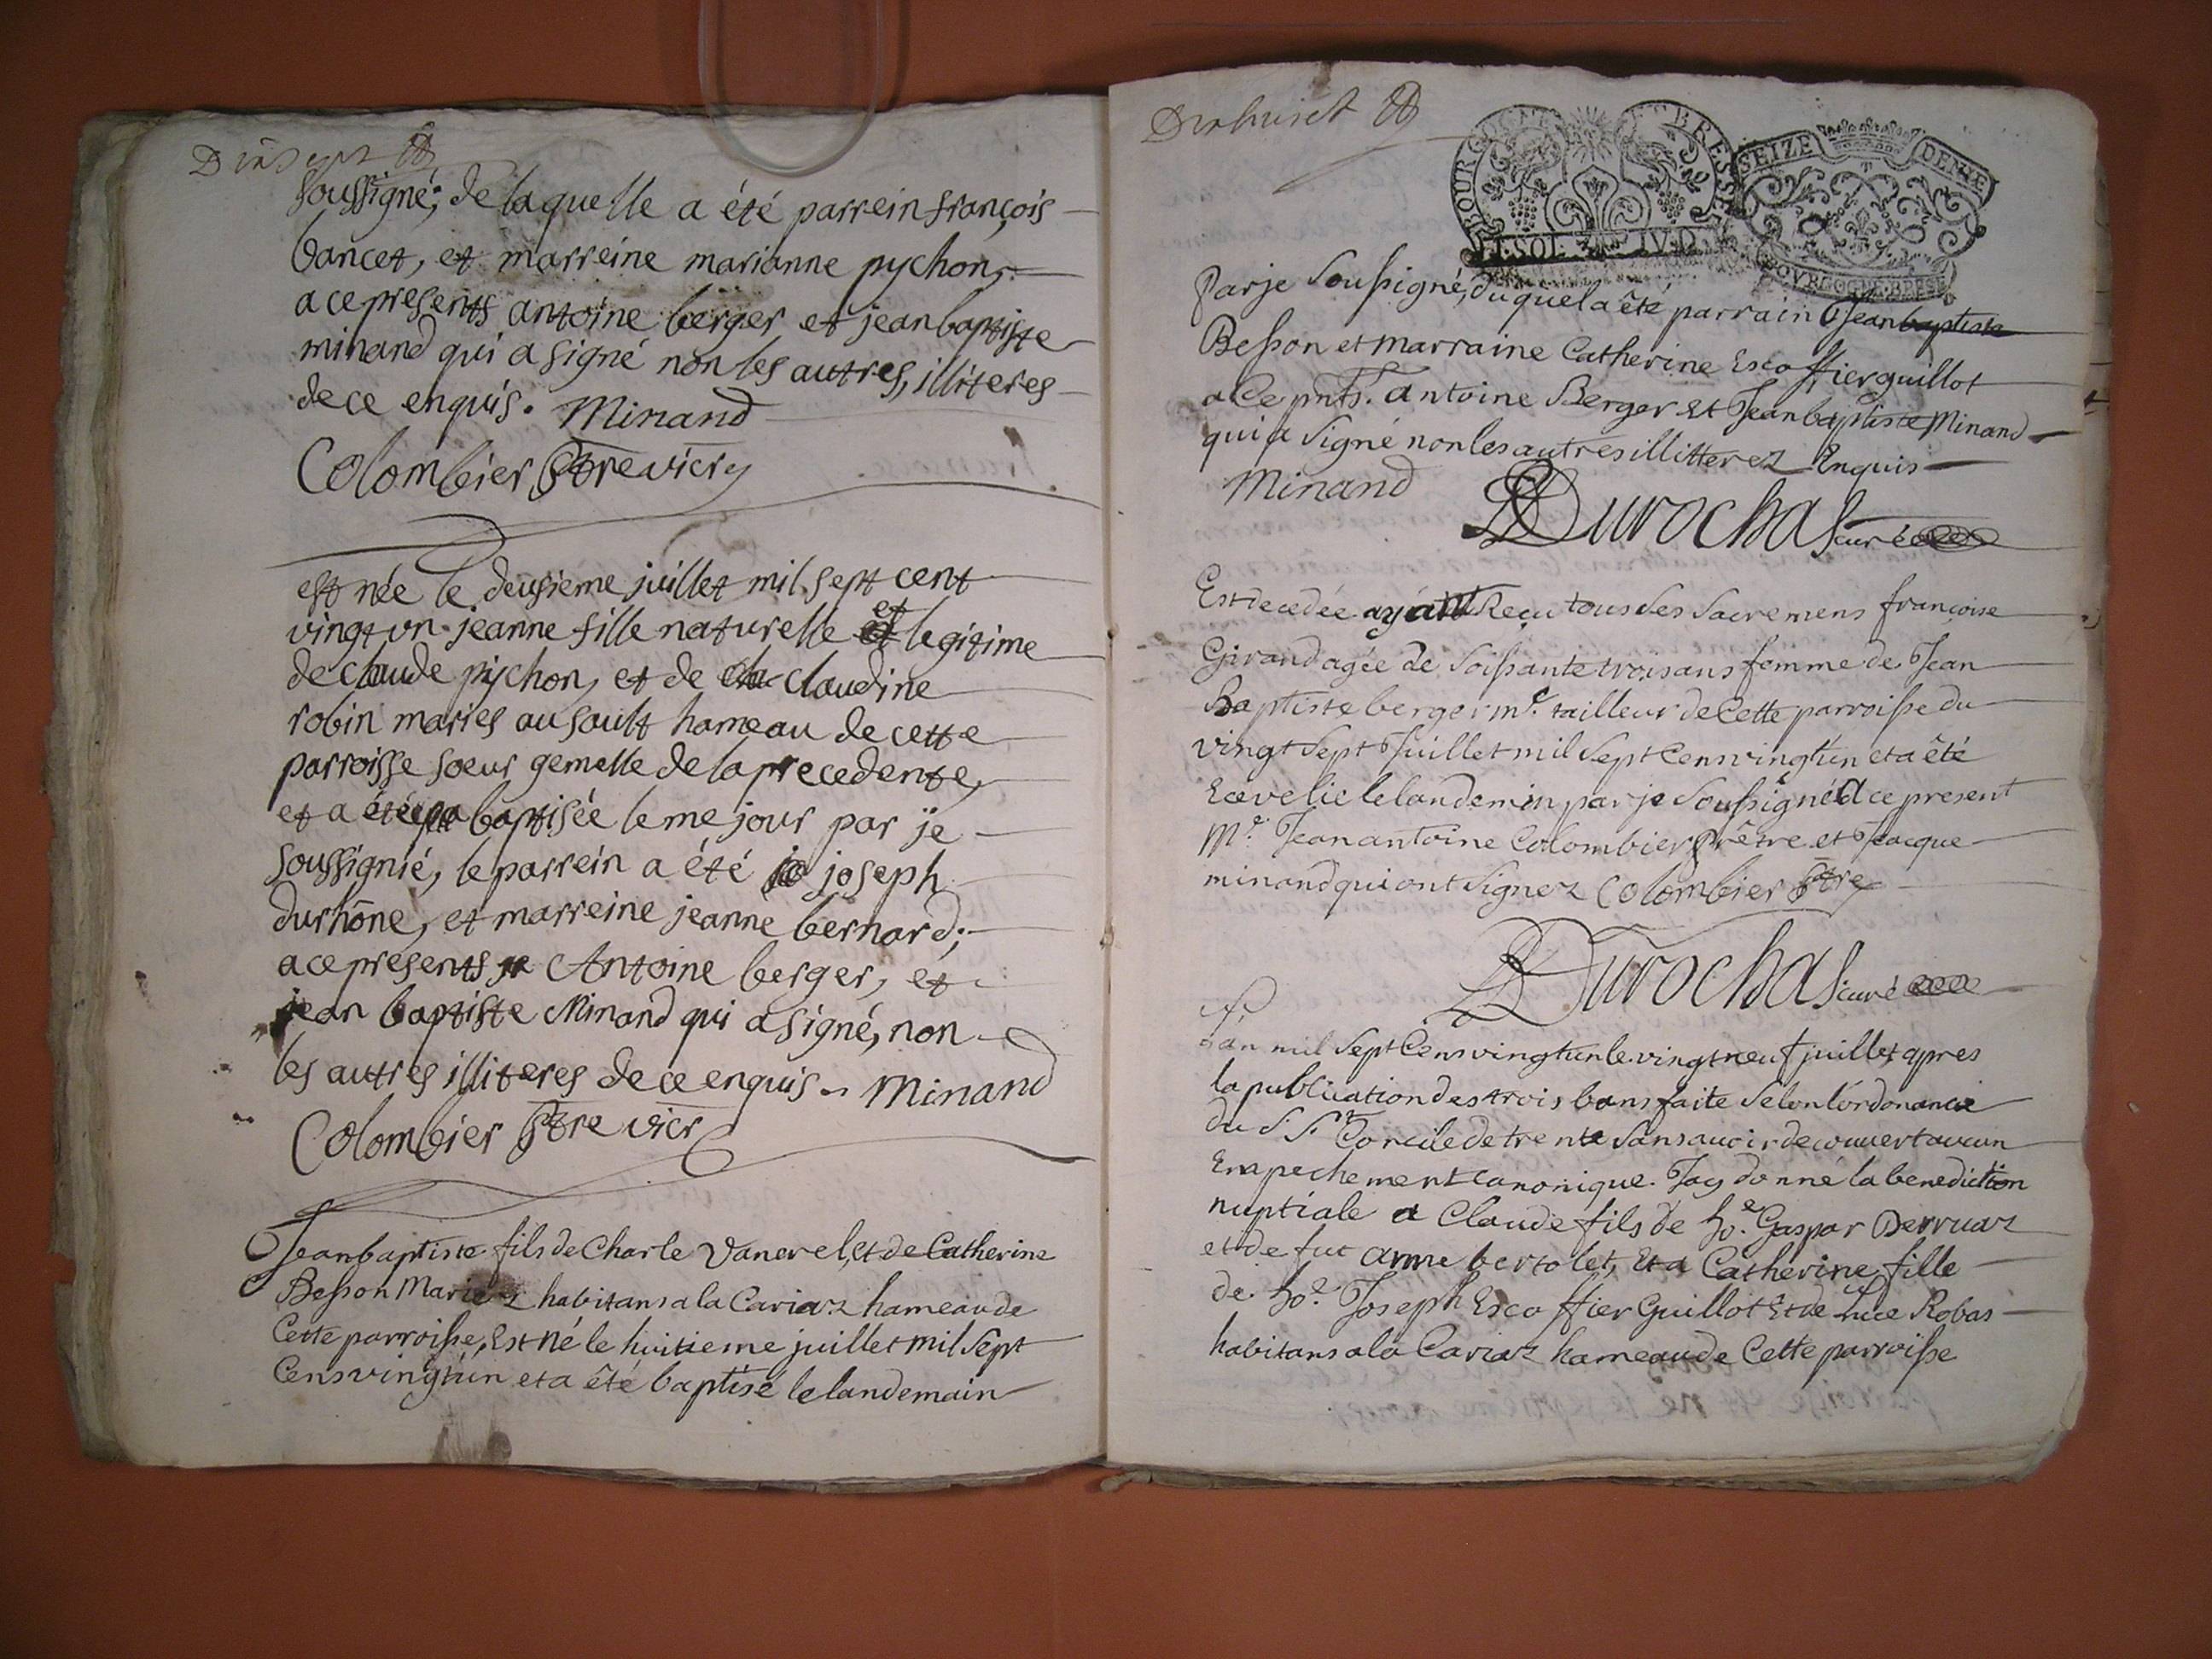 Dixsept
soussigné; de laquelle a été parrein françois
vancet, et marreine marianne pychon,
a ce presents antoine berger et jean baptiste
minand qui a signé non les autres, illiteres
de ce enquis. Minand
Colombier ptre vicr
est née le deusieme juillet mil sept cent
vingt un jeanne fille naturelle et legitime
de claude pychon, et de claudine
robin maries au sault hameau de cette
parroisse soeur gemelle de la precedente,
et a été baptisée le me jour par je
soussignié, le parrein a été joseph
durhône, et marreine jeanne bernard;
a ce presents Antoine berger, et
jean baptiste Minand qui a signé, non
les autres illiteres de ce enquis. Minand
Colombier ptre vicr
Jeanbaptiste fils de Charle Vanerel, Et de Catherine
Besson Mariez habitans a la Cariaz hameau de
Cette parroisse, Est né le huitieme juillet mil Sept
Cens vingtún et a êté baptisé le landemain
Dixhuict
BOURGOGNE BRESSE
1. SOL IV. D
SEIZE DENIE
BOVRGOGNE BRESSE
par je Soussigné, duquel a êté parrain Jeanbaptiste
Besson et Marraine Catherine Escoffier guillot
a Ce pnts. Antoine Berger Et Jean baptiste Minand
qui a Signé non les autres illitterez Enquis
Minand
Durochat curé
Est decedée ayant Reçu tous Ses Sacremens françoise
Girand agée de Soissante trois ans femme de Jean
Baptiste berger me. tailleur de Cette parroisse du
vingt Sept Juillet mil Sept Cens vingtún et a êté
Ecevelie le landemin par je Soussigné a ce present
Me. Jean antoine Colombier Prêtre et Jacque
minand qui ont Signez Colombier ptre
Durochat curé
Lan mil Sept Cens vingtun le vingt neuf juillet apres
la publication des trois bans faite Selon lórdonancie
du S. St Concile de trente Sans auoir decouvert aucun
Empechement canonique. Jay donné la benediction
nuptiale a Claude fils de ho.e Gaspar Derruaz
et de fut anne bertolet, Et a Catherine fille
de ho.e Joseph Escoffier Guillot Et de Luce Robas
habitans a la Cariaz hameau de Cette parroisse